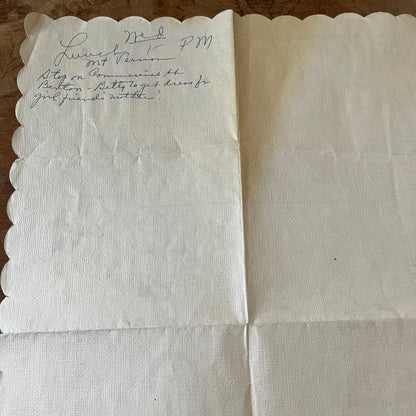 Wed
Lunch 1 PM
Mt Vernon
Stop on Commercial st
Benton - Betty to get dress for
girl friend's mother!